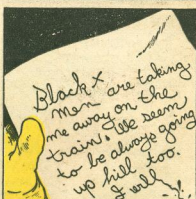 Black X
men are taking
me away on the
train. We seem
to be always going
up hill too.
I will